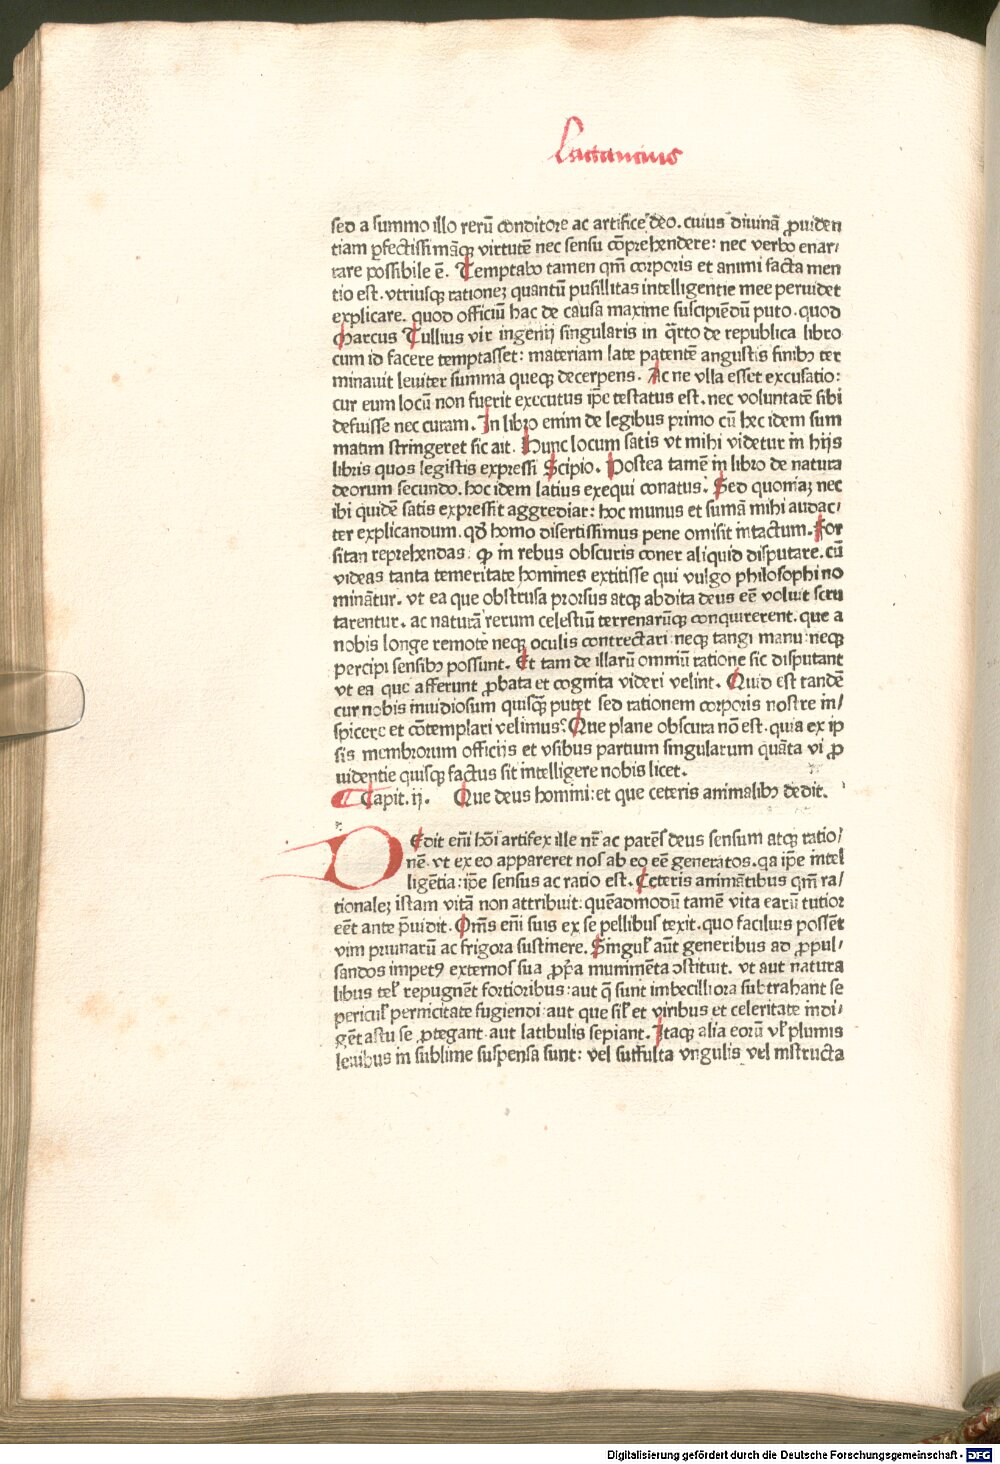 Lactancius
sed a summo illo rerū conditore ac artifice deo. cuius diuinā ꝓuiden
tiam ꝑfectissimāqꝫ virtutē nec sensu cōprehendere: nec verbo enar/
rare possibile ē. Temptabo tamen qm̄ corporis et animi facta men
tio est. vtriusqꝫ rationeꝫ quantū pusillitas intelligentie mee peruidet
explicare. quod officiū hac de causa maxime suscipiēdū puto. quod
Marcus Tullius vir ingenij singularis in q̄rto de republica libro
cum id facere temptasset: materiam late patentē angustis finibꝰ ter
minauit leuiter summa queqꝫ decerpens. Ac ne vlla esset excusatio:
cur eum locū non fuerit executus ip̄e testatus est. nec voluntatē sibi
defuisse nec curam. In libro enim de legibus primo cū hec idem sum
matim stringeret sic ait. Hunc locum satis vt mihi videtur in hijs
libris quos legistis expressi Scipio. Postea tamē in libro de natura
deorum secundo. hoc idem latius exequi conatus. Sed quoniaꝫ nec
ibi quidē satis expressit aggrediar: hoc munus et sumā mihi audac/
ter explicandum. qđ homo disertissimus pene omisit intactum. For
sitan reprehendas: ꝙ in rebus obscuris coner aliquid disputare. cū
videas tanta temeritate homines extitisse qui vulgo philosophi no
minātur. vt ea que obstrusa prorsus atqꝫ abdita deus eē voluit scru
tarentur. ac naturā rerum celestiū terrenarūqꝫ conquirerent. que a
nobis longe remote neqꝫ oculis contrectari: neqꝫ tangi manu: neqꝫ
percipi sensibꝰ possunt. Et tam de illarū omniū ratione sic disputant
vt ea que afferunt ꝓbata et cognita videri velint. Quid est tandē
cur nobis inuidiosum quisqꝫ putet sed rationem corporis nostre in/
spicere et cōtemplari velimus: Que plane obscura nō est. quia ex ip
sis membrorum officijs et vsibus partium singularum quāta vi ꝓ
uidentie quisqꝫ factus sit intelligere nobis licet.
Capit. ij. Que deus homini: et que ceteris animalibꝰ dedit.
DEdit em̄ hōi artifex ille nr̄ ac parēs deus sensum atqꝫ ratio/
nē. vt ex eo appareret nos ab eo eē generatos. qa ip̄e intel
ligētia: ip̄e sensus ac ratio est. Ceteris animātibus qm̄ ra/
tionaleꝫ istam vitā non attribuit: quēadmodū tamē vita earū tutior
eēt ante p̄uidit. Om̄s em̄ suis ex se pellibus texit. quo facilius possēt
vim pruinarū ac frigora sustinere. Singul̓ aūt generibus ad ꝓpul/
sandos impetꝰ externos sua ꝓp̄a munimēta ↄstituit. vt aut natura
libus tel̓ repugnēt fortioribus: aut q̄ sunt imbecilliora subtrahant se
pericul̓ pernicitate fugiendi: aut que sil̓ et viribus et celeritate indi/
gēt astu se ꝓtegant aut latibulis sepiant. Itaqꝫ alia eorū vl̓ plumis
leuibus in sublime suspensa sunt: vel suffulta vngulis vel instructa
Digitalisierung gefördert durch die Deutsche Forschungsgemeinschaft - DFG